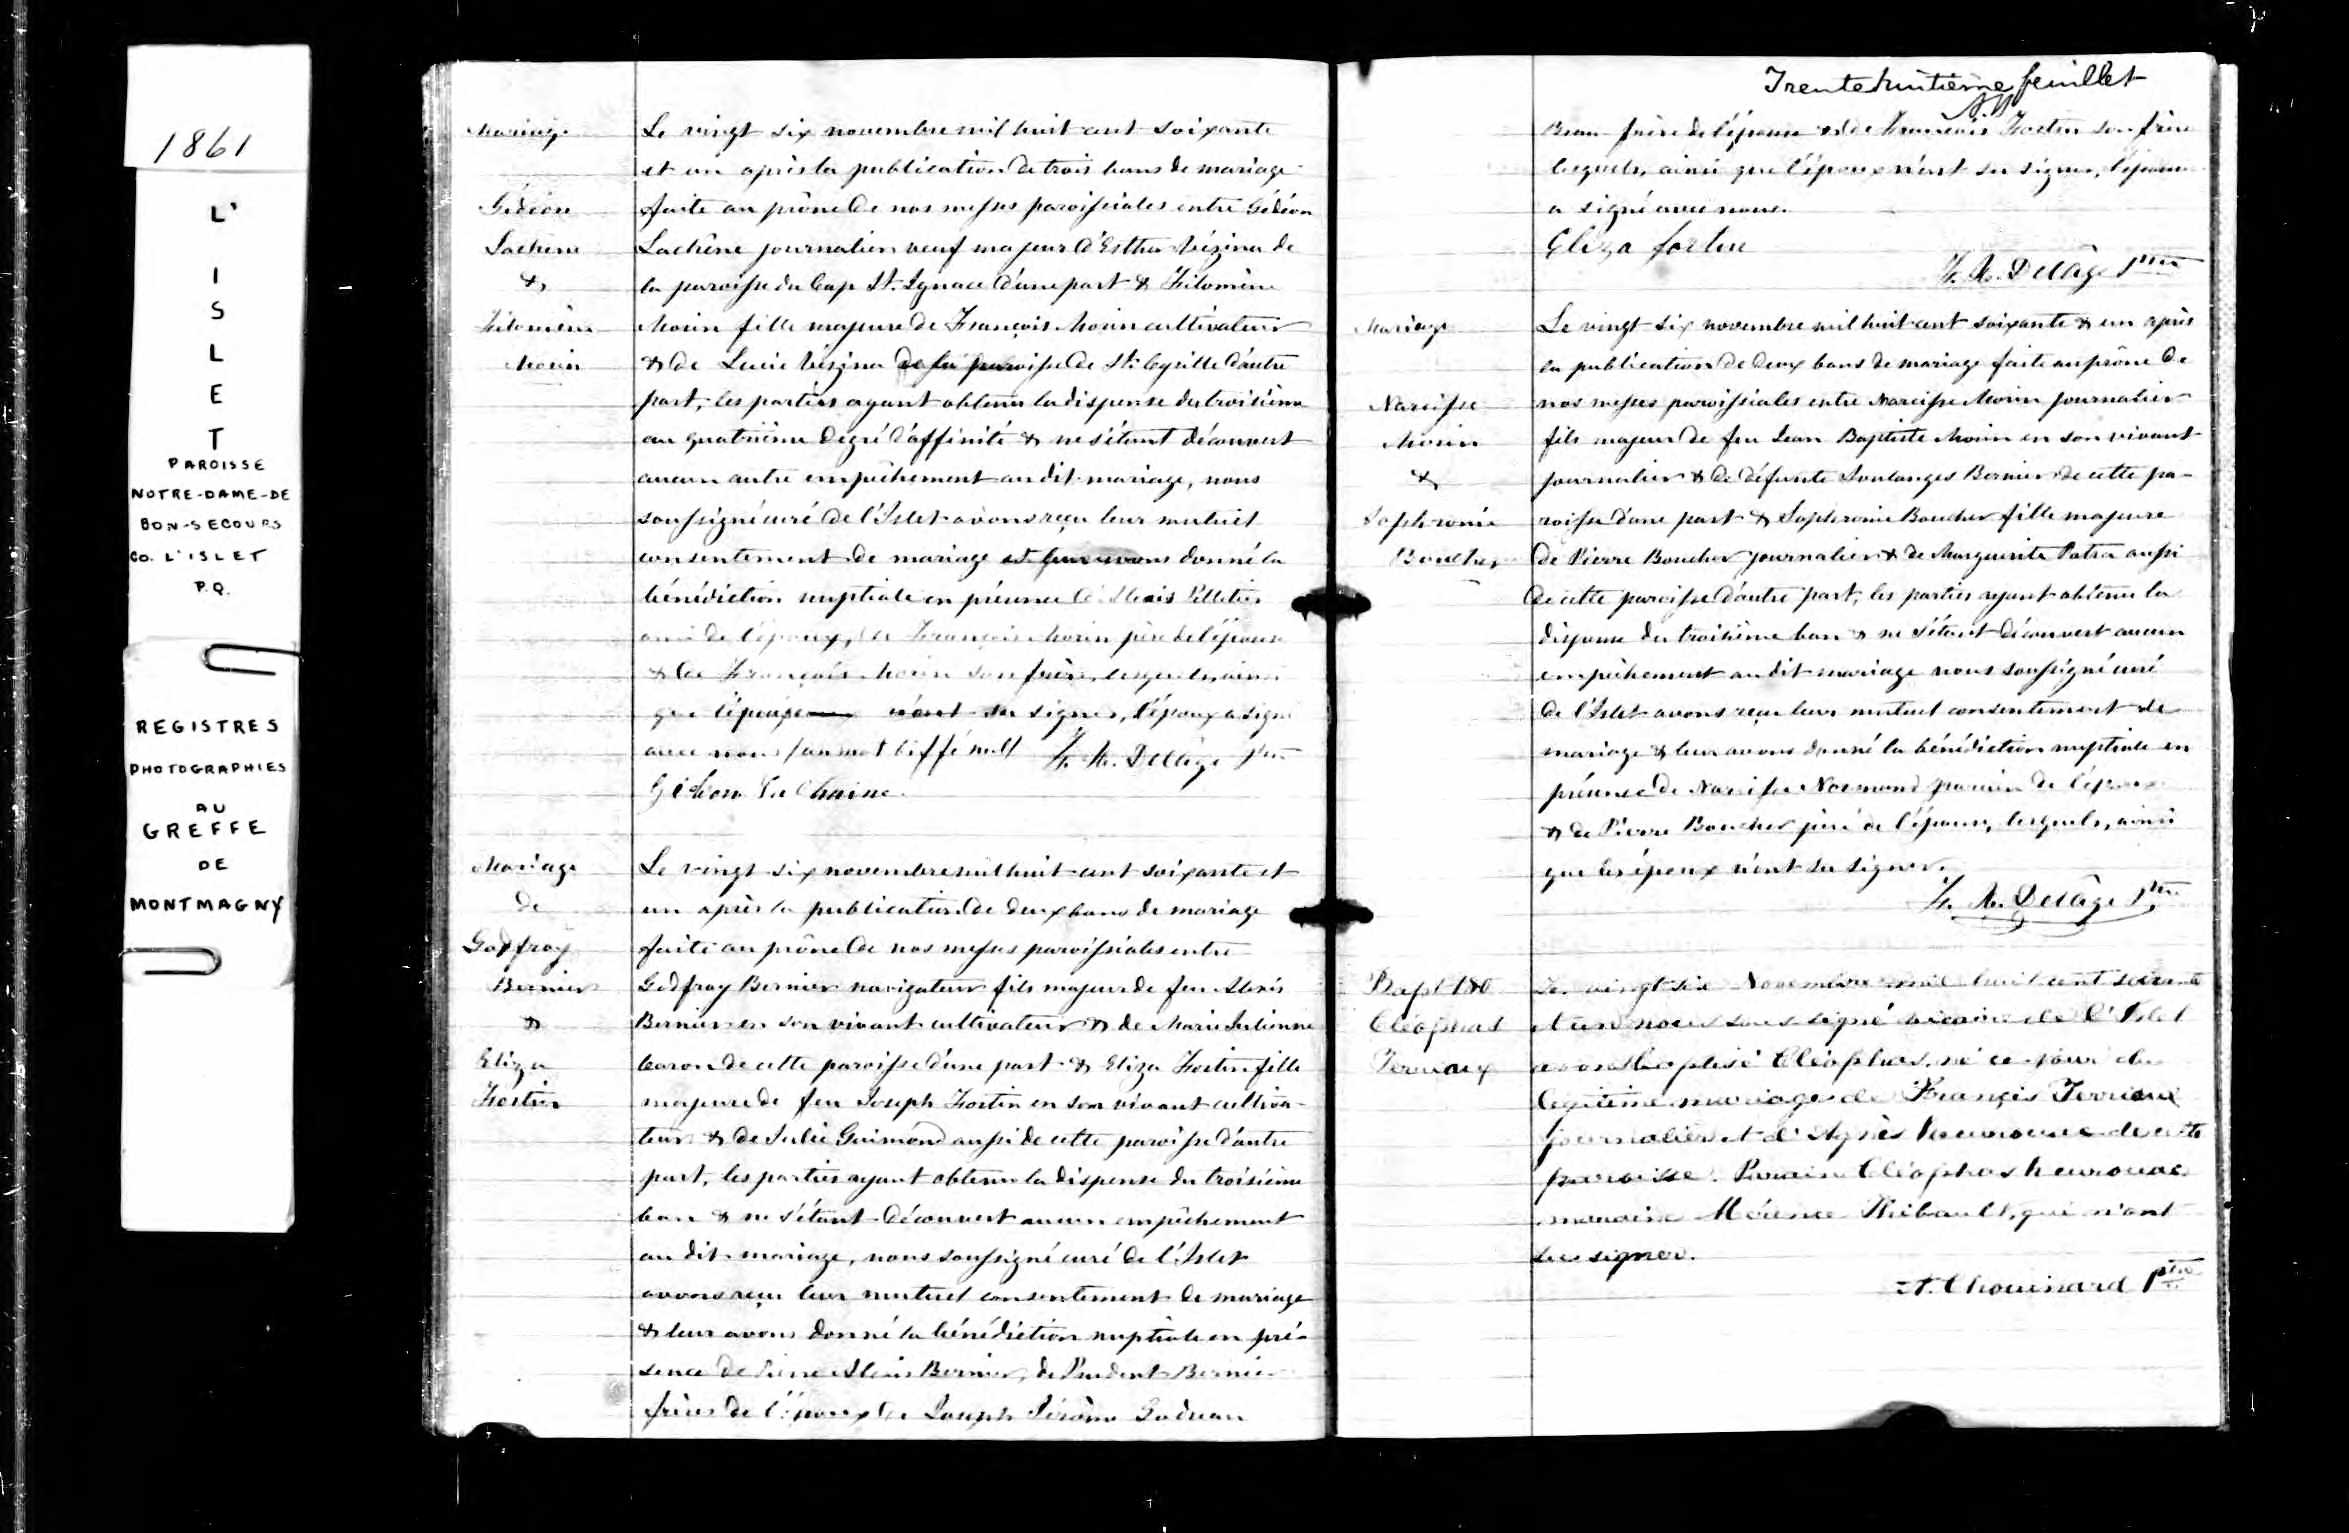 1861
L'
I
S
L
E
T
PAROISSE
NOTRE-DAME-DE
BON-SECOURS
CO. L'ISLET
P.Q.
REGISTRES
PHOTOGRAPHIES
AU
GREFFE
DE
MONTMAGNY
Mariage
Gédéon
Lachène
&
Filomène
Morin
Le vingt six novembre mil huit cent soixante
et un après la publication de trois bans de mariage
faite au prône de nos messes paroissiales entre Gédéon
Lachène journalier veuf majeur d'Esther Vézina de
la paroisse du Cap St. Ignace d'une part & Filomène
Morin fille majeure de François Morin cultivateur
& de Lucie Vézina de la paroisse de St. Cyrille d'autre
part, les parties ayant obtenu la dispense du troisième
au quatrième degré d'affinité & ne s'étant découvert
aucun autre empêchement au dit mariage, nous
soussigné curé de l'Islet avons reçu leur mutuel
consentement de mariage et leur avons donné la
bénédiction nuptiale en présence d'Alexis Pelletier
ami de l'époux, de François Morin père de l'épouse
& de François Morin son frère, lesquels, ainsi
que l'épouse n'ont su signer, l'époux a signé
avec nous / un mot biffé nul / F. X. Delâge Ptre
Gédéon La Chaine
Mariage
de
Godfroy
Bernier
&
Eliza
Fortin
Le vingt six novembre mil huit cent soixante et
un après la publication de deux bans de mariage
faite au prône de nos messes paroissiales entre
Godfroy Bernier navigateur fils majeur de feu Alexis
Bernier en son vivant cultivateur & de Marie Julienne
Caron de cette paroisse d'une part & Eliza Fortin fille
majeure de feu Joseph Fortin en son vivant cultiva-
teur & de Julie Guimond aussi de cette paroisse d'autre
part, les parties ayant obtenu la dispense du troisième
ban & ne s'étant découvert aucun empêchement
au dit mariage, nous soussigné curé de l'Islet
avons reçu leur mutuel consentement de mariage
& leur avons donné la bénédiction nuptiale en pré-
sence de Pierre Alexis Bernier, de Prudent Bernier
frères de l'époux de Joseph
Trente huitième feuillet
Beau frère de l'épouse & de François Fortin son frère
lesquels, ainsi que l'époux n'ont su signer, l'épouse
a signé avec nous.
Eliza fortin
F. X. Delâge Ptre
Mariage
Narcisse
Morin
&
Sophronie
Boucher
Le vingt six novembre mil huit cent soixante & un après
la publication de deux bans de mariage faite au prône de
nos messes paroissiales entre Narcisse Morin journalier
fils majeur de feu Jean Baptiste Morin en son vivant
journalier & de défunte Soulanges Bernier de cette pa-
roisse d'une part & Sophronie Boucher fille majeure
de Pierre Boucher journalier & de Marguerite aussi
de cette paroisse d'autre part, les parties ayant obtenu la
dispense du troisième ban & ne s'étant découvert aucun
empêchement au dit mariage nous soussigné curé
de l'Islet avons reçu leur mutuel consentement de
mariage & leur avons donné la bénédiction nuptiale en
présence de Narcisse Normand parrain de l'époux
& de Pierre Boucher père de l'épouse, lesquels, ainsi
que les époux n'ont su signer.
F. X. Delâge Ptre
Bapt 180
Cléophas
Terriaux
Le vingt six Novembre mil huit cent soixante
et un nous sous signé vicaire de l'Islet
avons baptisé Cléophas, né ce jour du
légitime mariage de François Terriaux
journalier et d'Agnès Keurouac de cette
paroisse. Parrain Cléophas Keurouac
marraine Thibault, qui n'ont
su signer.
A. Chouinard Ptre